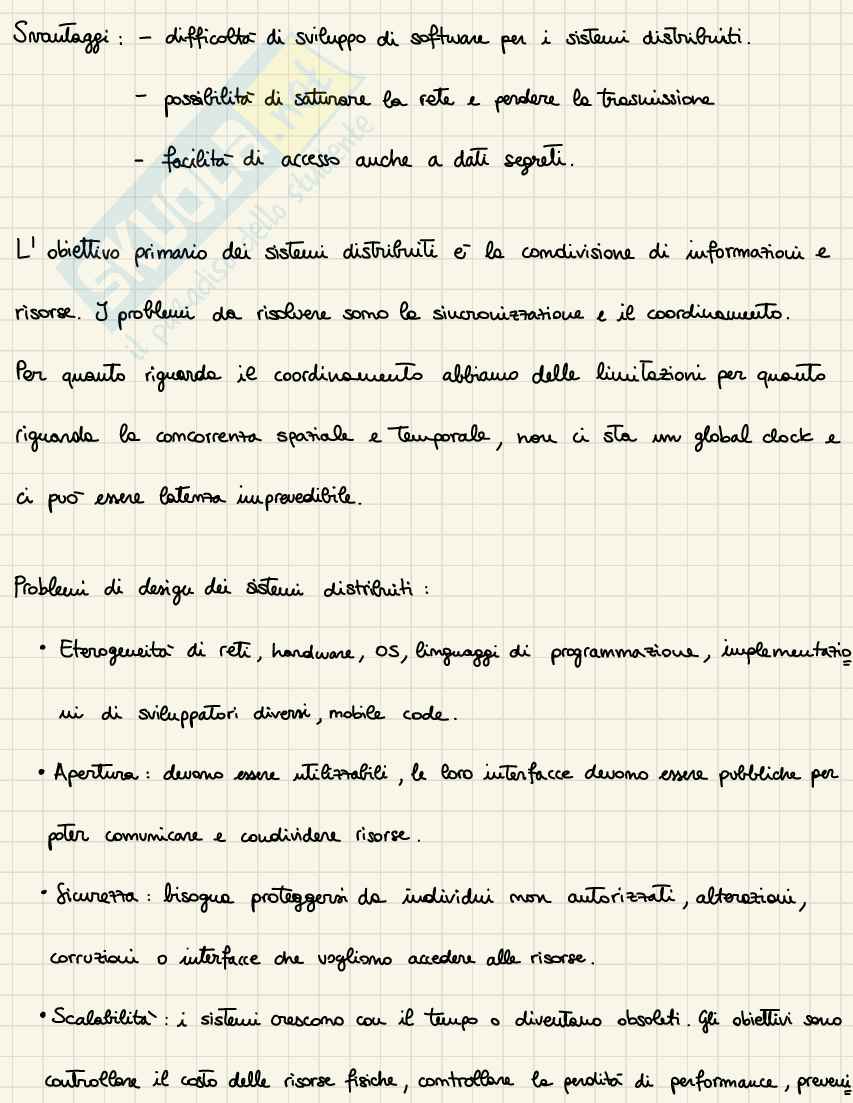 Svantaggi : - difficoltà di sviluppo di software per i sistemi distribuiti.
- possibilità di saturare la rete e perdere la trasmissione
- facilità di accesso anche a dati segreti.
SKUOLA.net
il paradiso dello studente
L' obiettivo primario dei sistemi distribuiti è la condivisione di informazioni e
risorse. I problemi da risolvere sono la sincronizzazione e il coordinamento.
Per quanto riguarda il coordinamento abbiamo delle limitazioni per quanto
riguarda la concorrenza spaziale e temporale, non ci sta un global clock e
ci può essere latenza imprevedibile.
Problemi di design dei sistemi distribuiti :
• Eterogeneità di reti, hardware, OS, linguaggi di programmazione, implementazio
ni di sviluppatori diversi, mobile code.
• Apertura : devono essere utilizzabili, le loro interfacce devono essere pubbliche per
poter comunicare e condividere risorse.
• Sicurezza : bisogna proteggersi da individui non autorizzati, alterazioni,
corruzioni o interfacce che vogliono accedere alle risorse.
• Scalabilità : i sistemi crescono con il tempo o diventano obsoleti. Gli obiettivi sono
controllare il costo delle risorse fisiche, controllare la perdita di performance, preveni